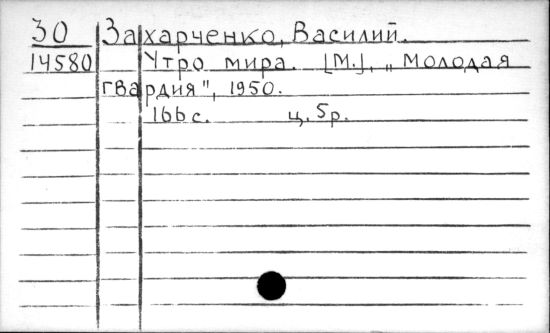 30 Захарченко, Василий.
14580 Утро мира. [М.], „Молодая
гвардия", 1950.
166 с. ц. 5р.